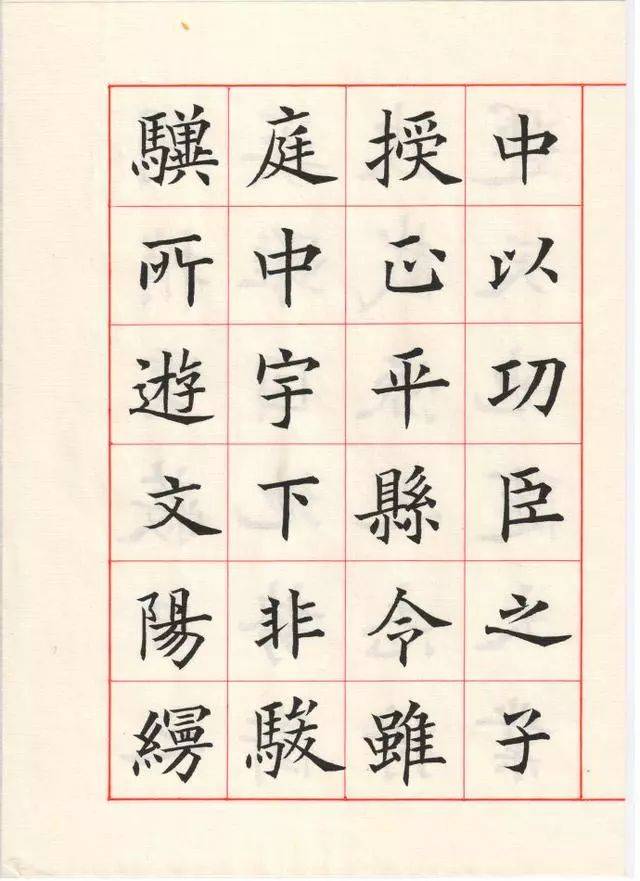 中以功臣之子
授正平縣令雖
庭中宇下非駿
驥所遊文陽縵